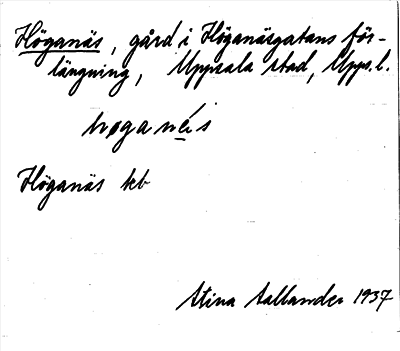 Höganäs, gård i Höganäsgatans för-
längning, Uppsala stad, Upps.l.
Höganäs kb
Stina Sallander 1937